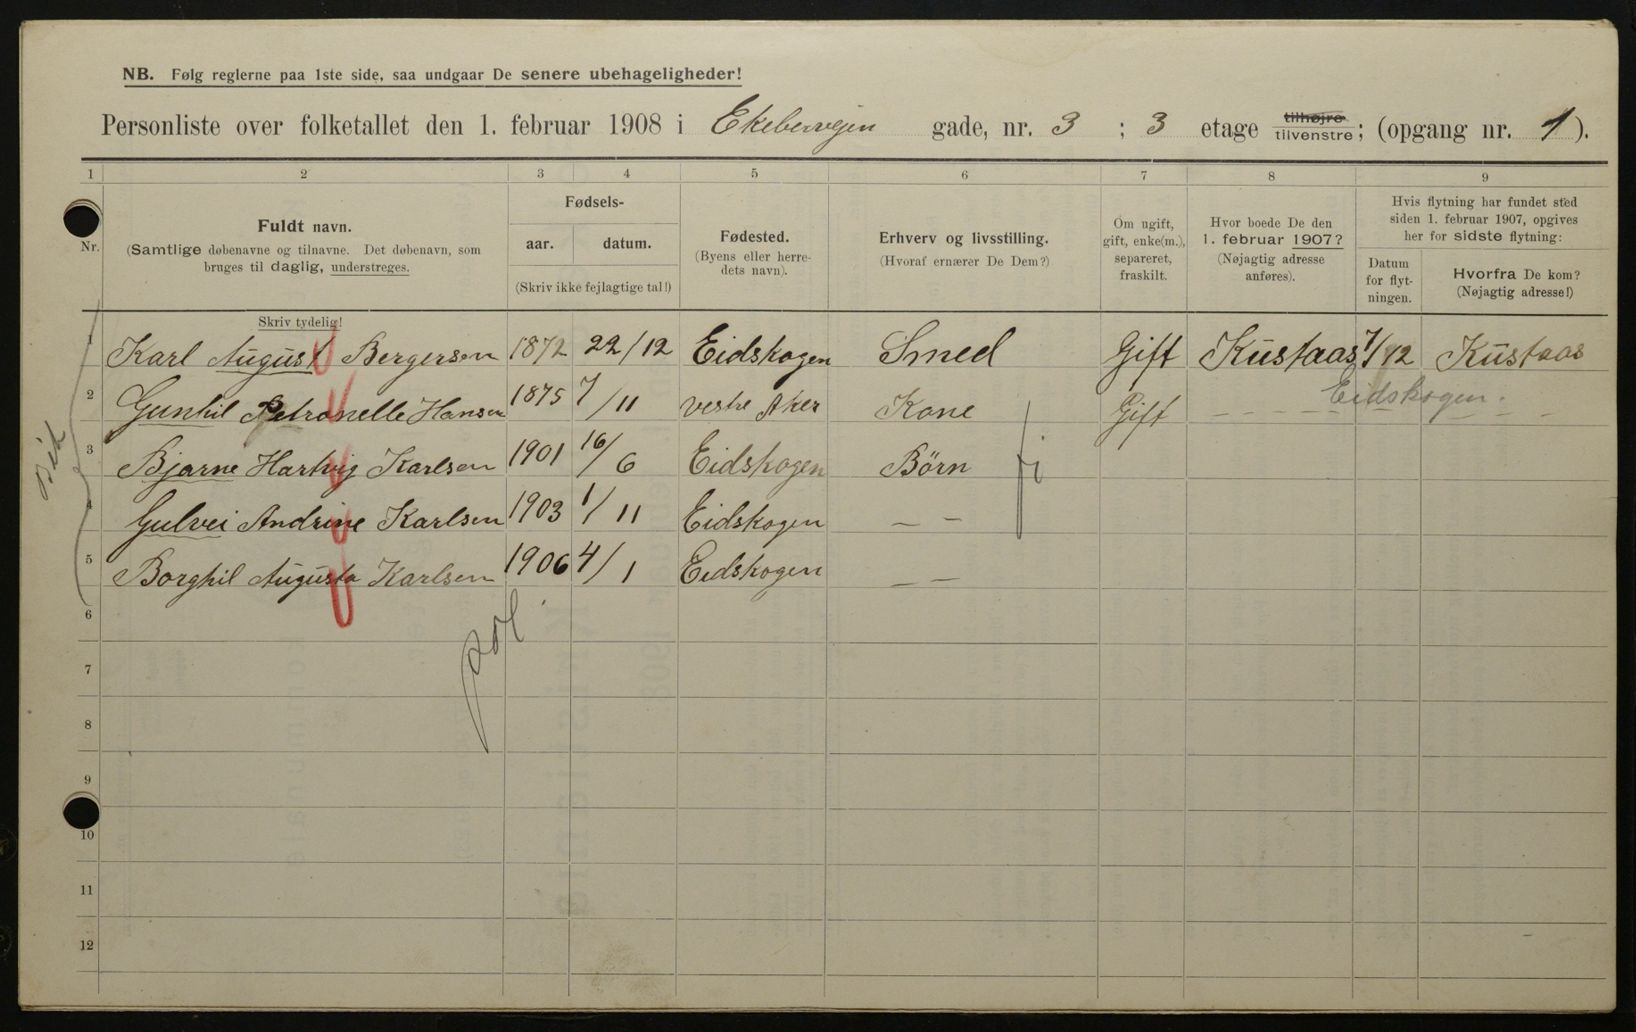 NB. Følg reglerne paa 1ste side, saa undgaar De senere ubehageligheder!
Personliste over folketallet den 1. februar 1908 i Ekebervejen gade, nr. 3 ; 3 etage tilhøjre tilvenstre; (opgang nr. 1).
1 2 3 4 5 6 7 8 9
Nr.
Fuldt navn.
(Samtlige døbenavne og tilnavne. Det døbenavn, som
bruges til daglig, understreges.
Skriv tydelig!
Fødsels-
aar. datum.
(Skriv ikke fejlagtige tal!)
Fødested.
(Byens eller herre-
dets navn).
Erhverv og livsstilling.
(Hvoraf ernærer De Dem?)
Om ugift,
gift, enke(m.),
separeret,
fraskilt.
Hvor boede De den
1. februar 1907?
(Nøjagtig adresse
anføres).
Hvis flytning har fundet sted
siden 1. februar 1907, opgives
her for sidste flytning:
Datum
for flyt-
ningen.
Hvorfra De kom?
(Nøjagtig adresse!)
1 Karl August Bergersen 1872 22/12 Eidskogen Smed Gift Kustaas 1/12 Kustaas
2 Gunhil Petronelle Hansen 1875 7/11 vestre Aker Kone Gift Eidskogen.
3 Bjarne Hartvig Karlsen 1901 16/6 Eidskogen Børn
4 Gulvei Andrine Karlsen 1903 1/11 Eidskogen — —
5 Borghil Augusta Karlsen 1906 4/1 Eidskogen — —
6
7
8
9
10
11
12